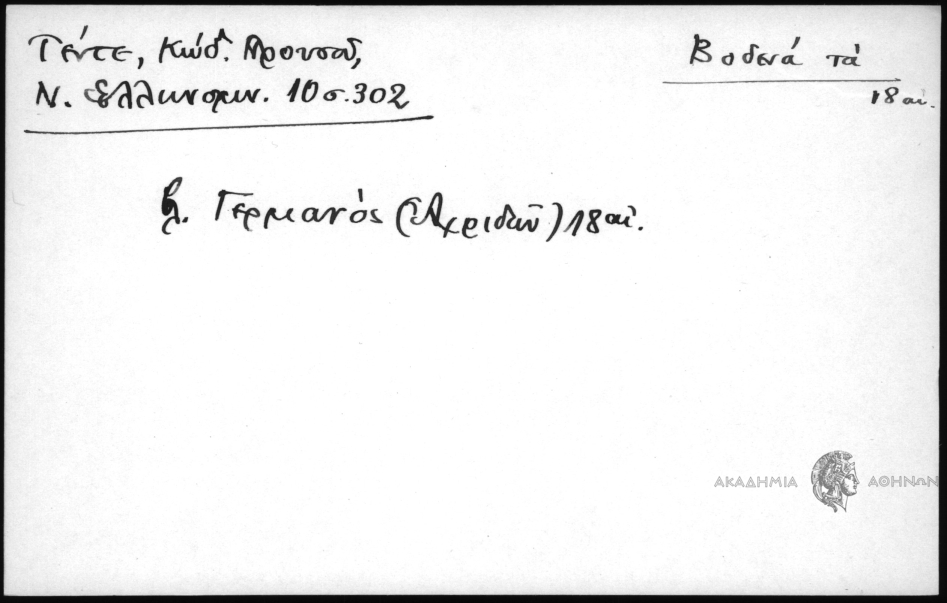 Γέντε, Κώδ. Προύσας,
Ν. Ἑλληνομν. 10 σ. 302
Βοδενά τά
18 αἰ.
βλ. Γερμανός (Ἀχριδῶν) 18 αἰ.
ΑΚΑΔΗΜΙΑ ΑΘΗΝΩΝ